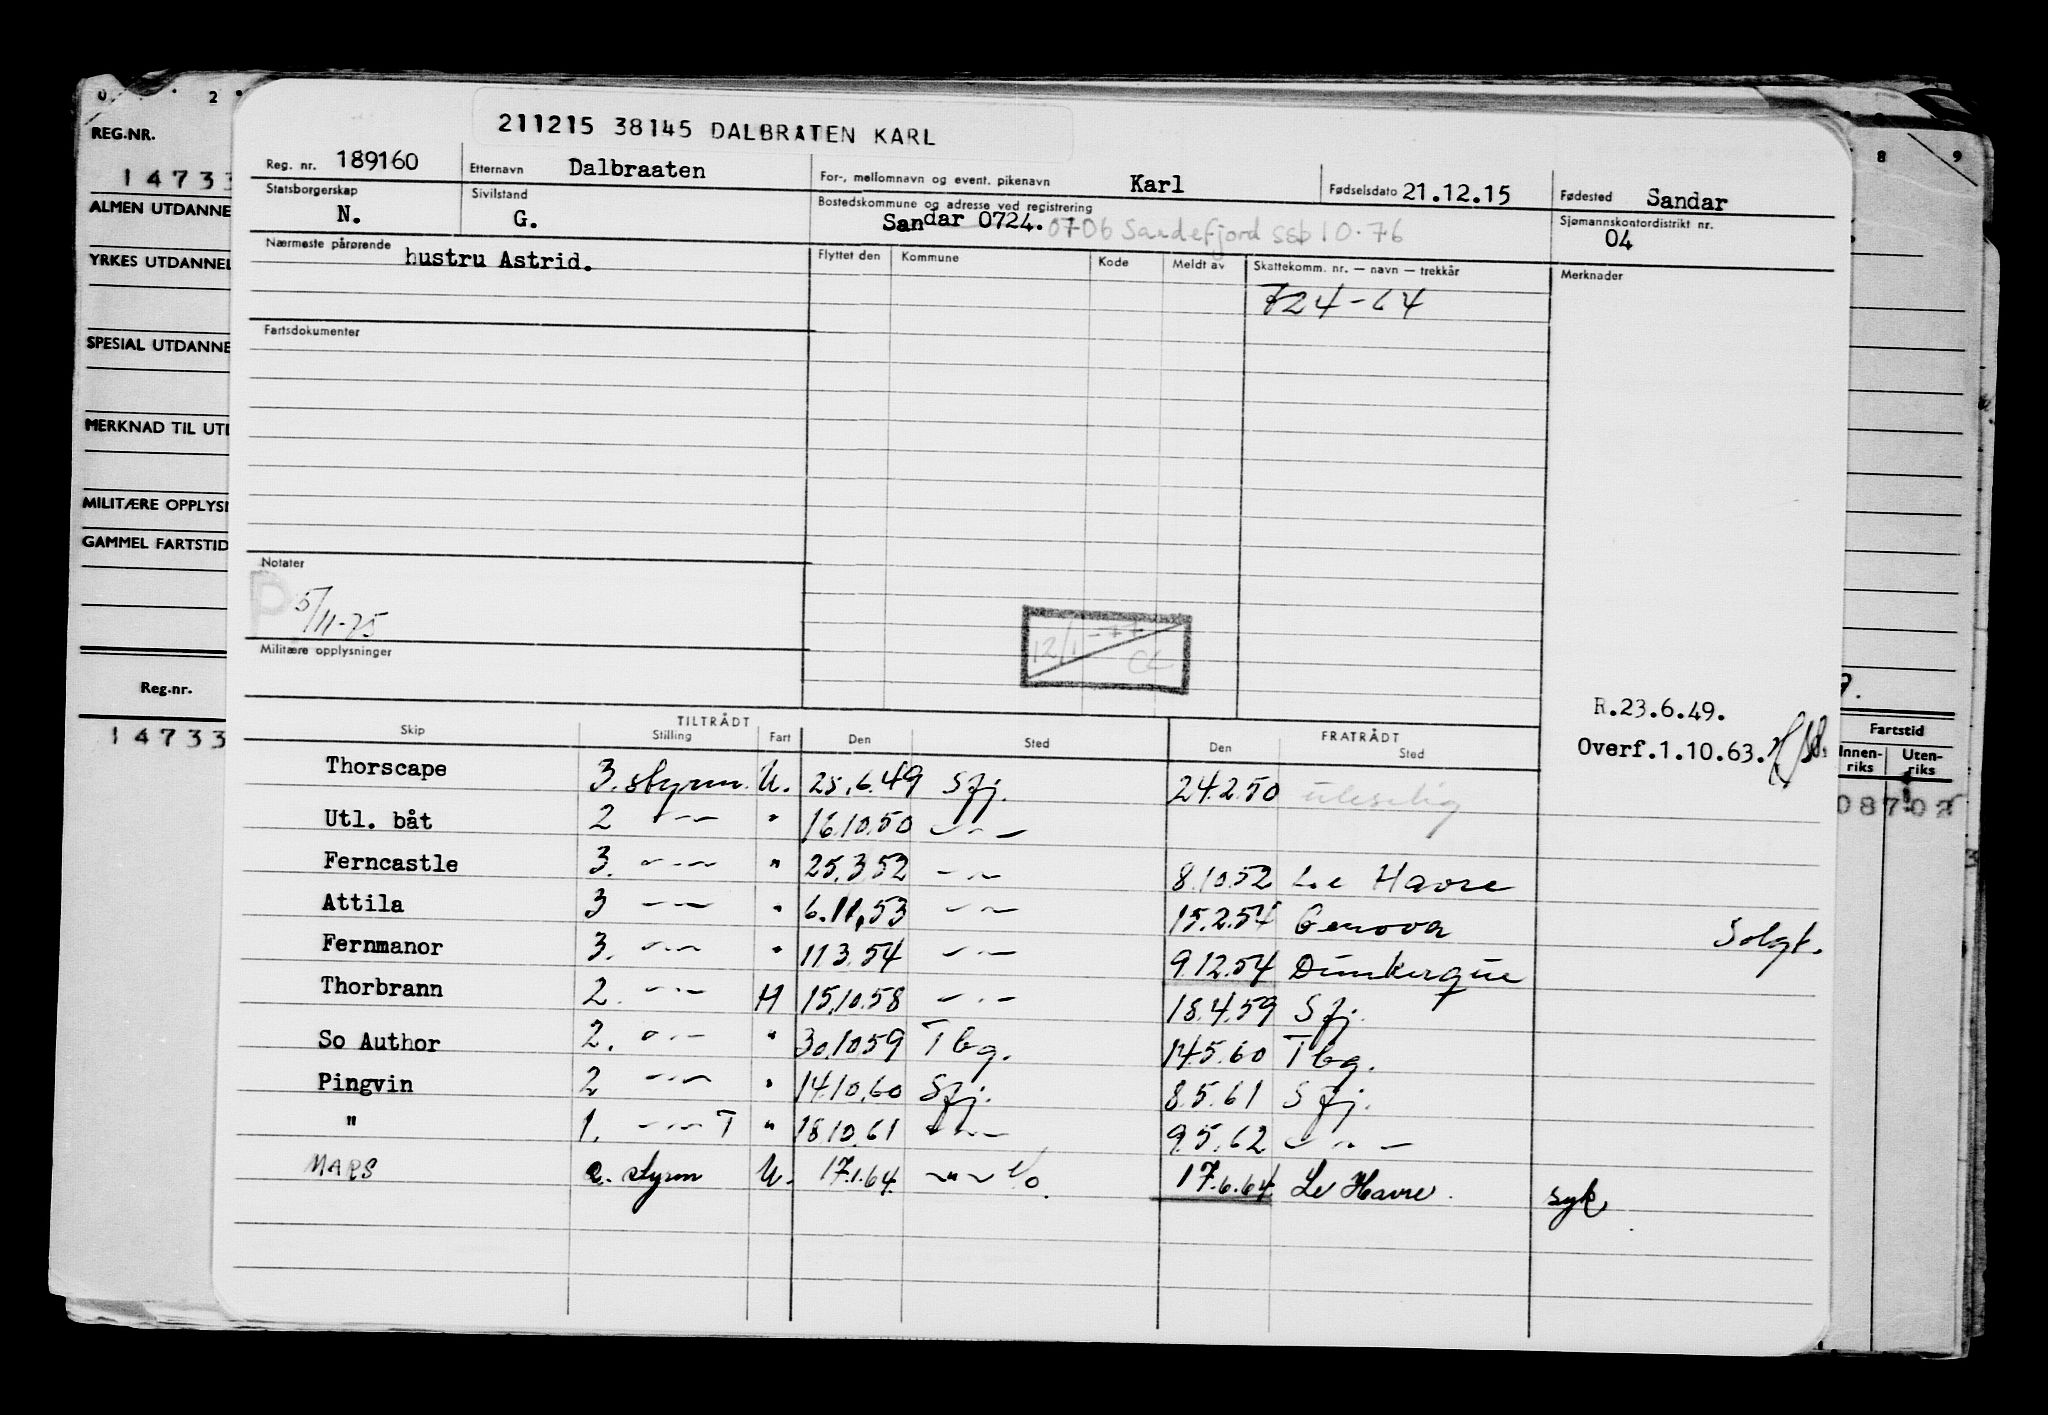 0 . 2
REG.NR.
14733
ALMEN UTDANNE
YRKES UTDANNEL
SPESIAL UTDANNE
MERKNAD TIL UTD
MILITÆRE OPPLYSN
GAMMEL FARTSTID
Reg.nr.
14733
8 9
Fartstid
Innen-riks Uten-riks
08702
211215 38145 DALBRATEN KARL
Reg. nr. 189160 Etternavn Dalbraaten For-, mellomnavn og event. pikenavn Karl Fødselsdato 21.12.15 Fødested Sandar
Statsborgerskap N. Sivilstand G. Bostedskommune og adresse ved registrering Sandar 0724. 0706 Sandefjord ssb 10.76 Sjømannskontordistrikt nr. 04
Nærmeste pårørende hustru Astrid. Flyttet den Kommune Kode Meldt av Skattekomm. nr. — navn — trekkår Merknader
724-64
Fartsdokumenter
Notater
P 5/11-75
12/1-77
Militære opplysninger
R.23.6.49.
Overf.1.10.63.
TILTRÅDT FRATRÅDT
Skip Stilling Fart Den Sted Den Sted
Thorscape 3. styrm. U. 25.6.49 Sfj. 24.2.50 uleselig
Utl. båt 2 -"- " 16.10.50 -"-
Ferncastle 3. -"- " 25.3.52 -"- 8.10.52 Le Havre
Attila 3 -"- " 6.11.53 -"- 15.2.54 Genova Solgt.
Fernmanor 3. -"- " 11.3.54 -"- 9.12.54 Dunkerque
Thorbrann 2. -"- H 15.10.58 -"- 18.4.59 Sfj.
So Author 2. -"- " 30.10.59 Tbg. 14.5.60 Tbg.
Pingvin 2 -"- " 14.10.60 Sfj. 8.5.61 Sfj.
" 1. -"- T " 18.10.61 -"- 9.5.62 -"-
MARS 2. styrm U. 17.1.64 -"- 17.6.64. Le Havre. syk